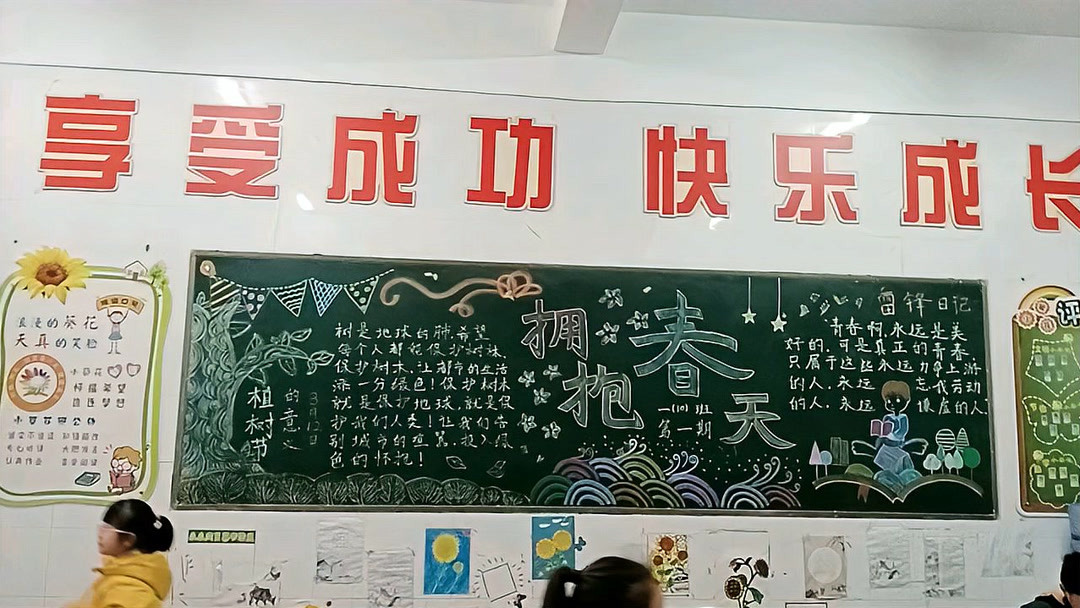 享受成功 快乐成长
浪漫的葵花
天真的笑脸
拥抱
春天
一(10)班
第一期
植树节
的意义
3月12日
树是地球的肺,希望
每个人都能保护树林,
保护树木,让都市的生活
添一分绿色!保护树林
就是保护地球,就是保
护我们人类!让我们告
别城市的喧嚣,投入绿
色的怀抱!
雷锋日记
青春啊,永远是美
好的,可是真正的青春,
只属于这些永远力争上游
的人,永远忘我劳动
的人,永远谦虚的人
评